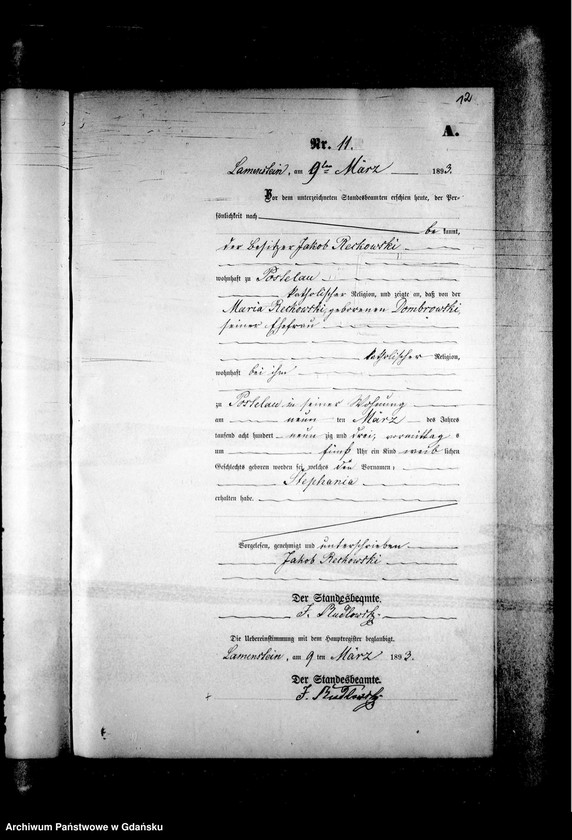 12
A.
Nr. 11.
Lamenstein, am 9ten März 1893.
Vor dem unterzeichneten Standesbeamten erschien heute, der Per-
sönlichkeit nach
bekannt,
der Besitzer Jakob Reckowski
wohnhaft zu Postelau
katholischer Religion, und zeigte an, daß von der
Maria Reckowski, geborenen Dombrowski,
seiner Ehefrau
katholischer Religion,
wohnhaft bei ihm
zu Postelau in seiner Wohnung
am neun ten März des Jahres
tausend acht hundert neun zig und drei, vormittags
um fünf Uhr ein Kind weiblichen
Geschlechts geboren worden sei, welches den Vornamen:
Stephania
erhalten habe.
Vorgelesen, genehmigt und unterschrieben
Jakob Reckowski
Der Standesbeamte.
Die Uebereinstimmung mit dem Hauptregister beglaubigt.
Lamenstein, am 9 ten März 1893.
Der Standesbeamte.
Archiwum Państwowe w Gdańsku